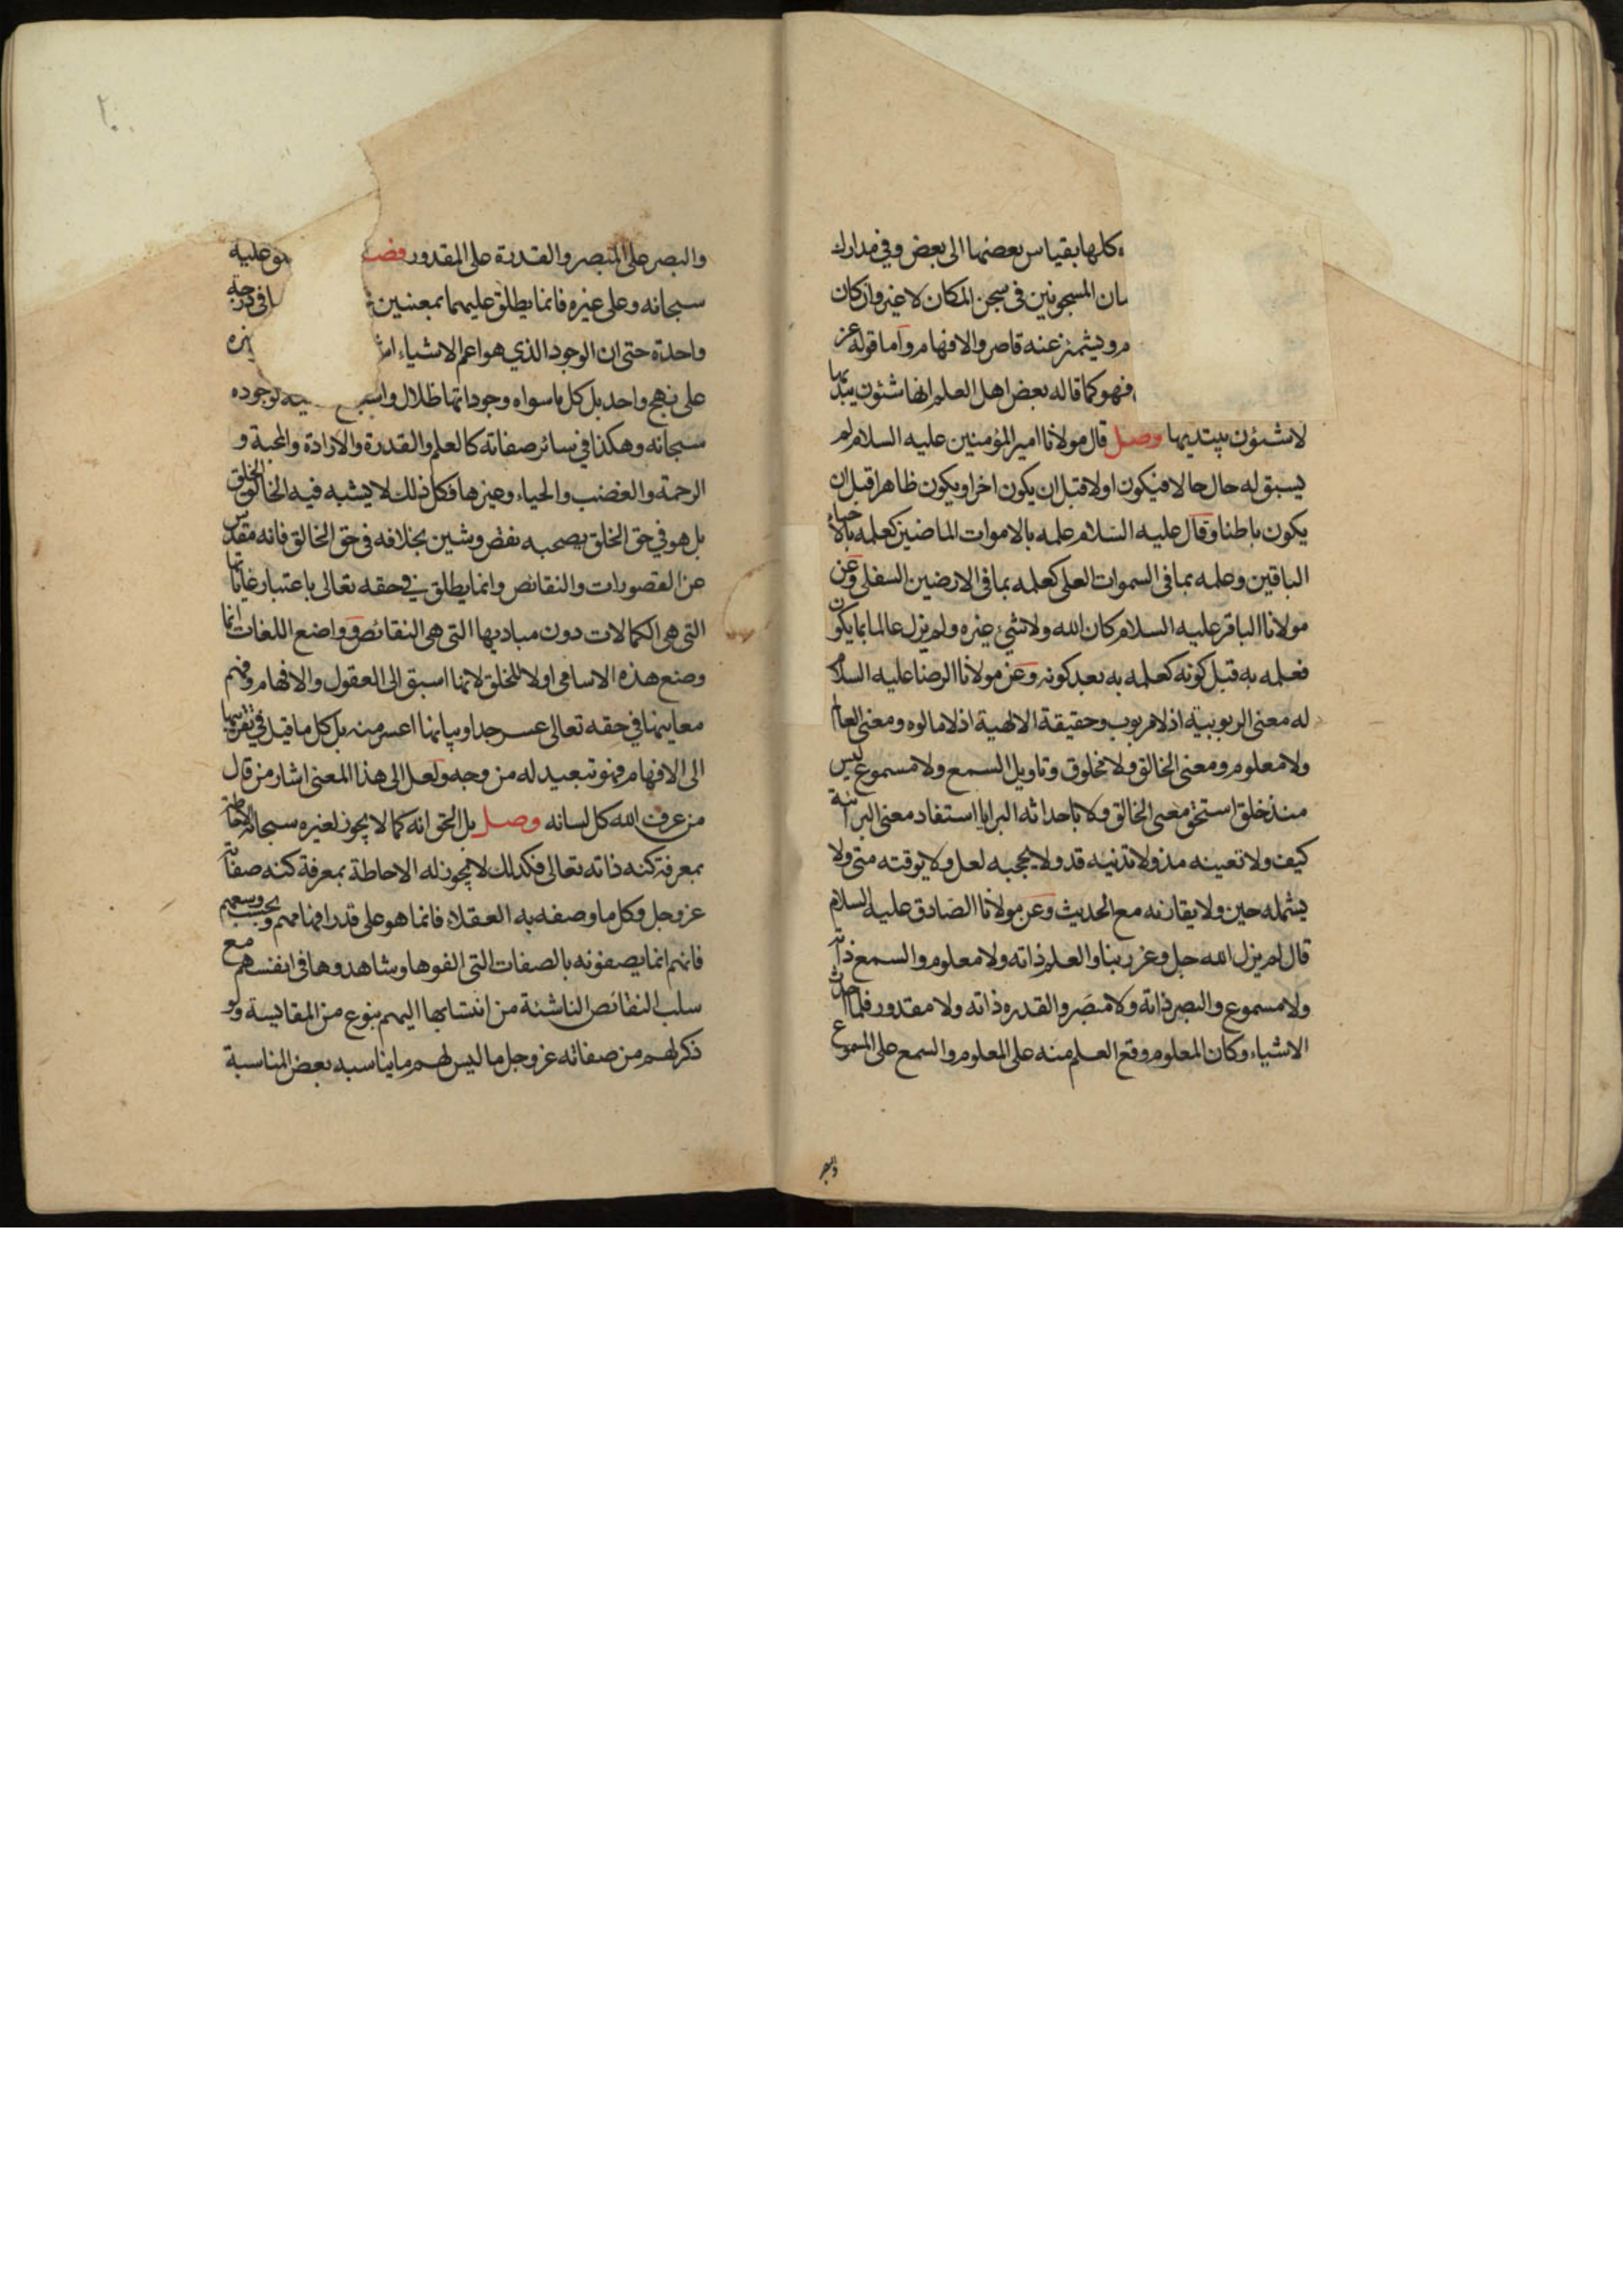 كلها بقياس بعضها الى بعض وفي مدارك
المسجونين في سجن المكان لا غير وان كان
ويشمئز عنه قاصروا الافهام واما قوله عز
فهو كما قاله بعض اهل العلم انها شئون يبديها
لا شئون يبتديها وصل قال مولانا امير المؤمنين عليه السلام لم
يسبق له حال حالا فيكون اولا قبل ان يكون اخرا ويكون ظاهرا قبل ان
يكون باطنا وقال عليه السلام علمه بالاموات الماضين كعلمه بالاحياء
الباقين وعلمه بما في السموات العلى كعلمه بما في الارضين السفلى وعن
مولانا الباقر عليه السلام كان الله ولا شيء غيره ولم يزل عالما بما يكون
فعلمه به قبل كونه كعلمه به بعد كونه وعن مولانا الرضا عليه السلام
له معنى الربوبية اذ لا مربوب وحقيقة الالهية اذ لا مالوه ومعنى العالم
ولا معلوم ومعنى الخالق ولا مخلوق وتاويل السمع ولا مسموع ليس
منذ خلق استحق معنى الخالق ولا باحداثه البرايا استفاد معنى البرائية
كيف ولا تعينه مذ ولا تدنيه قد ولا يحجبه لعل ولا يوقته متى ولا
يشمله حين ولا يقارنه مع الحديث وعن مولانا الصادق عليه السلام
قال لم يزل الله جل وعز ربنا والعلم ذاته ولا معلوم والسمع ذاته
ولا مسموع والبصر ذاته ولا مبصر والقدره ذاته ولا مقدور فلما احدث
الاشياء وكان المعلوم وقع العلم منه على المعلوم والسمع على المسموع
والبصر
٢٠
والبصر على المبصر والقدرة على المقدور عليه
سبحانه وعلى غيره فانما يطلق عليهما بمعنيين في درجة
واحدة حتى ان الوجود الذي هو اعم الاشياء
على نهج واحد بل كل ما سواه وجوداتها ظلال لوجوده
سبحانه وهكذا في سائر صفاته كالعلم والقدرة والارادة والمحبة و
الرحمة والغضب والحياء وغيرها فكل ذلك لا يشبه فيه الخالق الخلق
بل هو في حق الخلق يصحبه نقص وشين بخلافه في حق الخالق فانه مقدس
عن القصورات والنقائص وانما يطلق في حقه تعالى باعتبار غاياتها
التي هي الكمالات دون مباديها التي هي النقائص وواضع اللغات انما
وضع هذه الاسامي اولا للخلق لانها اسبق الى العقول والافهام وفهم
معانيها في حقه تعالى عسر جدا وبيانها اعسر منه بل كل ما قيل في تقريبها
الى الافهام فهو تبعيد له من وجه ولعل الى هذا المعنى اشار من قال
من عرف الله كل لسانه وصل بل الحق انه كما لا يجوز لغيره سبحانه الاحاطة
بمعرفة كنه ذاته تعالى فكذلك لا يجوز له الاحاطة بمعرفة كنه صفاته
عز وجل وكل ما وصفه به العقلاء فانما هو على قدر افهامهم وبحسب وسعهم
فانهم انما يصفونه بالصفات التي الفوها وشاهدوها في انفسهم مع
سلب النقائص الناشئة من انتسابها اليهم بنوع من المقايسة ولو
ذكر لهم من صفاته عز وجل ما ليس لهم ما يناسبه بعض المناسبة